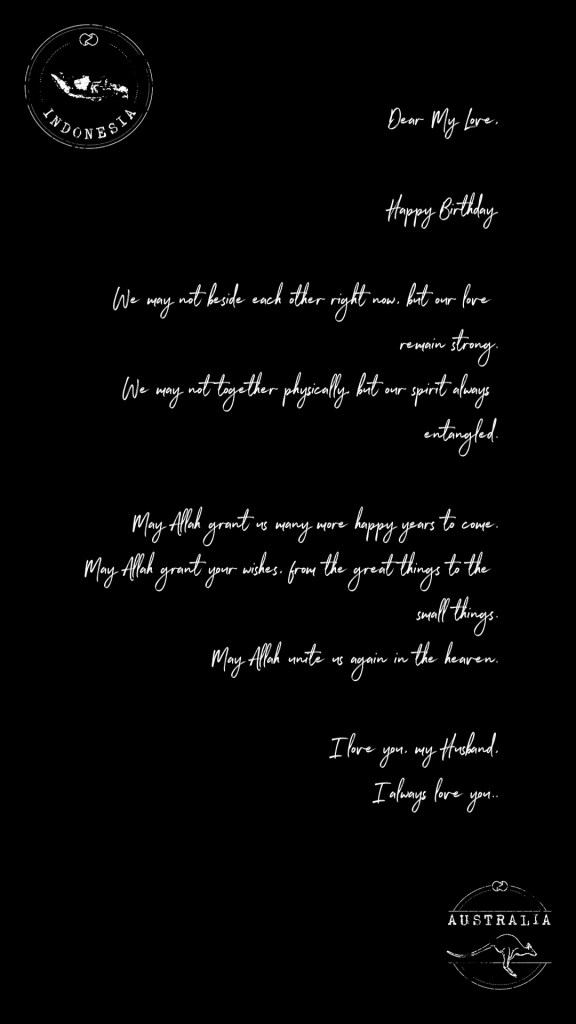 INDONESIA
Dear My Love,
Happy Birthday
We may not beside each other right now, but our love
remain strong.
We may not together physically, but our spirit always
entangled.
May Allah grant us many more happy years to come.
May Allah grant your wishes, from the great things to the
small things.
May Allah unite us again in the heaven.
I love you, my Husband.
I always love you..
AUSTRALIA